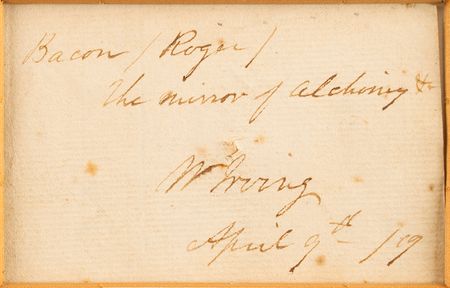 Bacon / Roger /.
The mirror of Alchimy &c
W Irving
April 9th /19